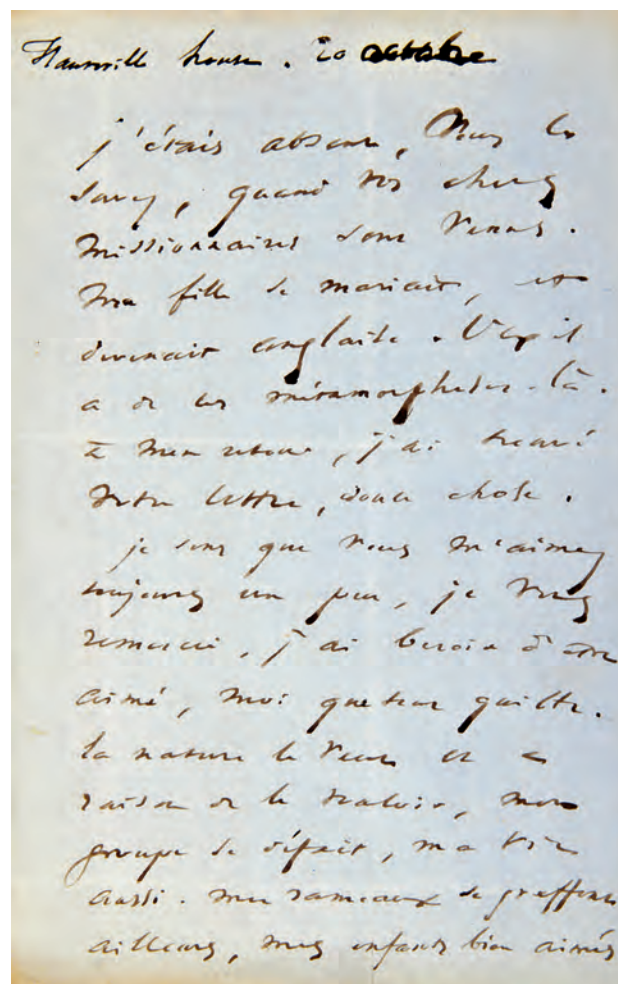 Hauteville house. 20 octobre
j'étais absent, vous le
savez, quand vos chers
missionnaires sont venus.
Ma fille se mariait, et
devenait anglaise. L'exil
a de ces métamorphoses-là.
à mon retour, j'ai trouvé
votre lettre, douce chose.
je sens que vous m'aimez
toujours un peu, je vous
remercie, j'ai besoin d'être
aimé, moi que tout quitte.
la nature le veut et a
raison de le vouloir, mon
groupe se défait, ma vie
aussi. mes rameaux se greffent
ailleurs, mes enfants bien aimés